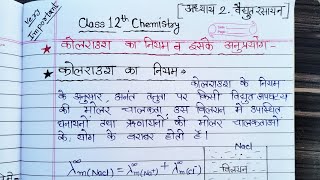 Very Important
[अध्याय 2. वैद्युत रसायन]
Class 12th Chemistry
★ कोलराउश का नियम व इसके अनुप्रयोग -
★ कोलराउश का नियम -
कोलराउश के नियम
के अनुसार, अनंत तनुता पर किसी विद्युत अपघट्य
की मोलर चालकता, उस विलयन में उपस्थित
धनायनों तथा ऋणायनों की मोलर चालकताओं
के योग के बराबर होती है।
NaCl
λ∞m(NaCl) = λ∞m(Na+) + λ∞m(Cl-)
विलयन